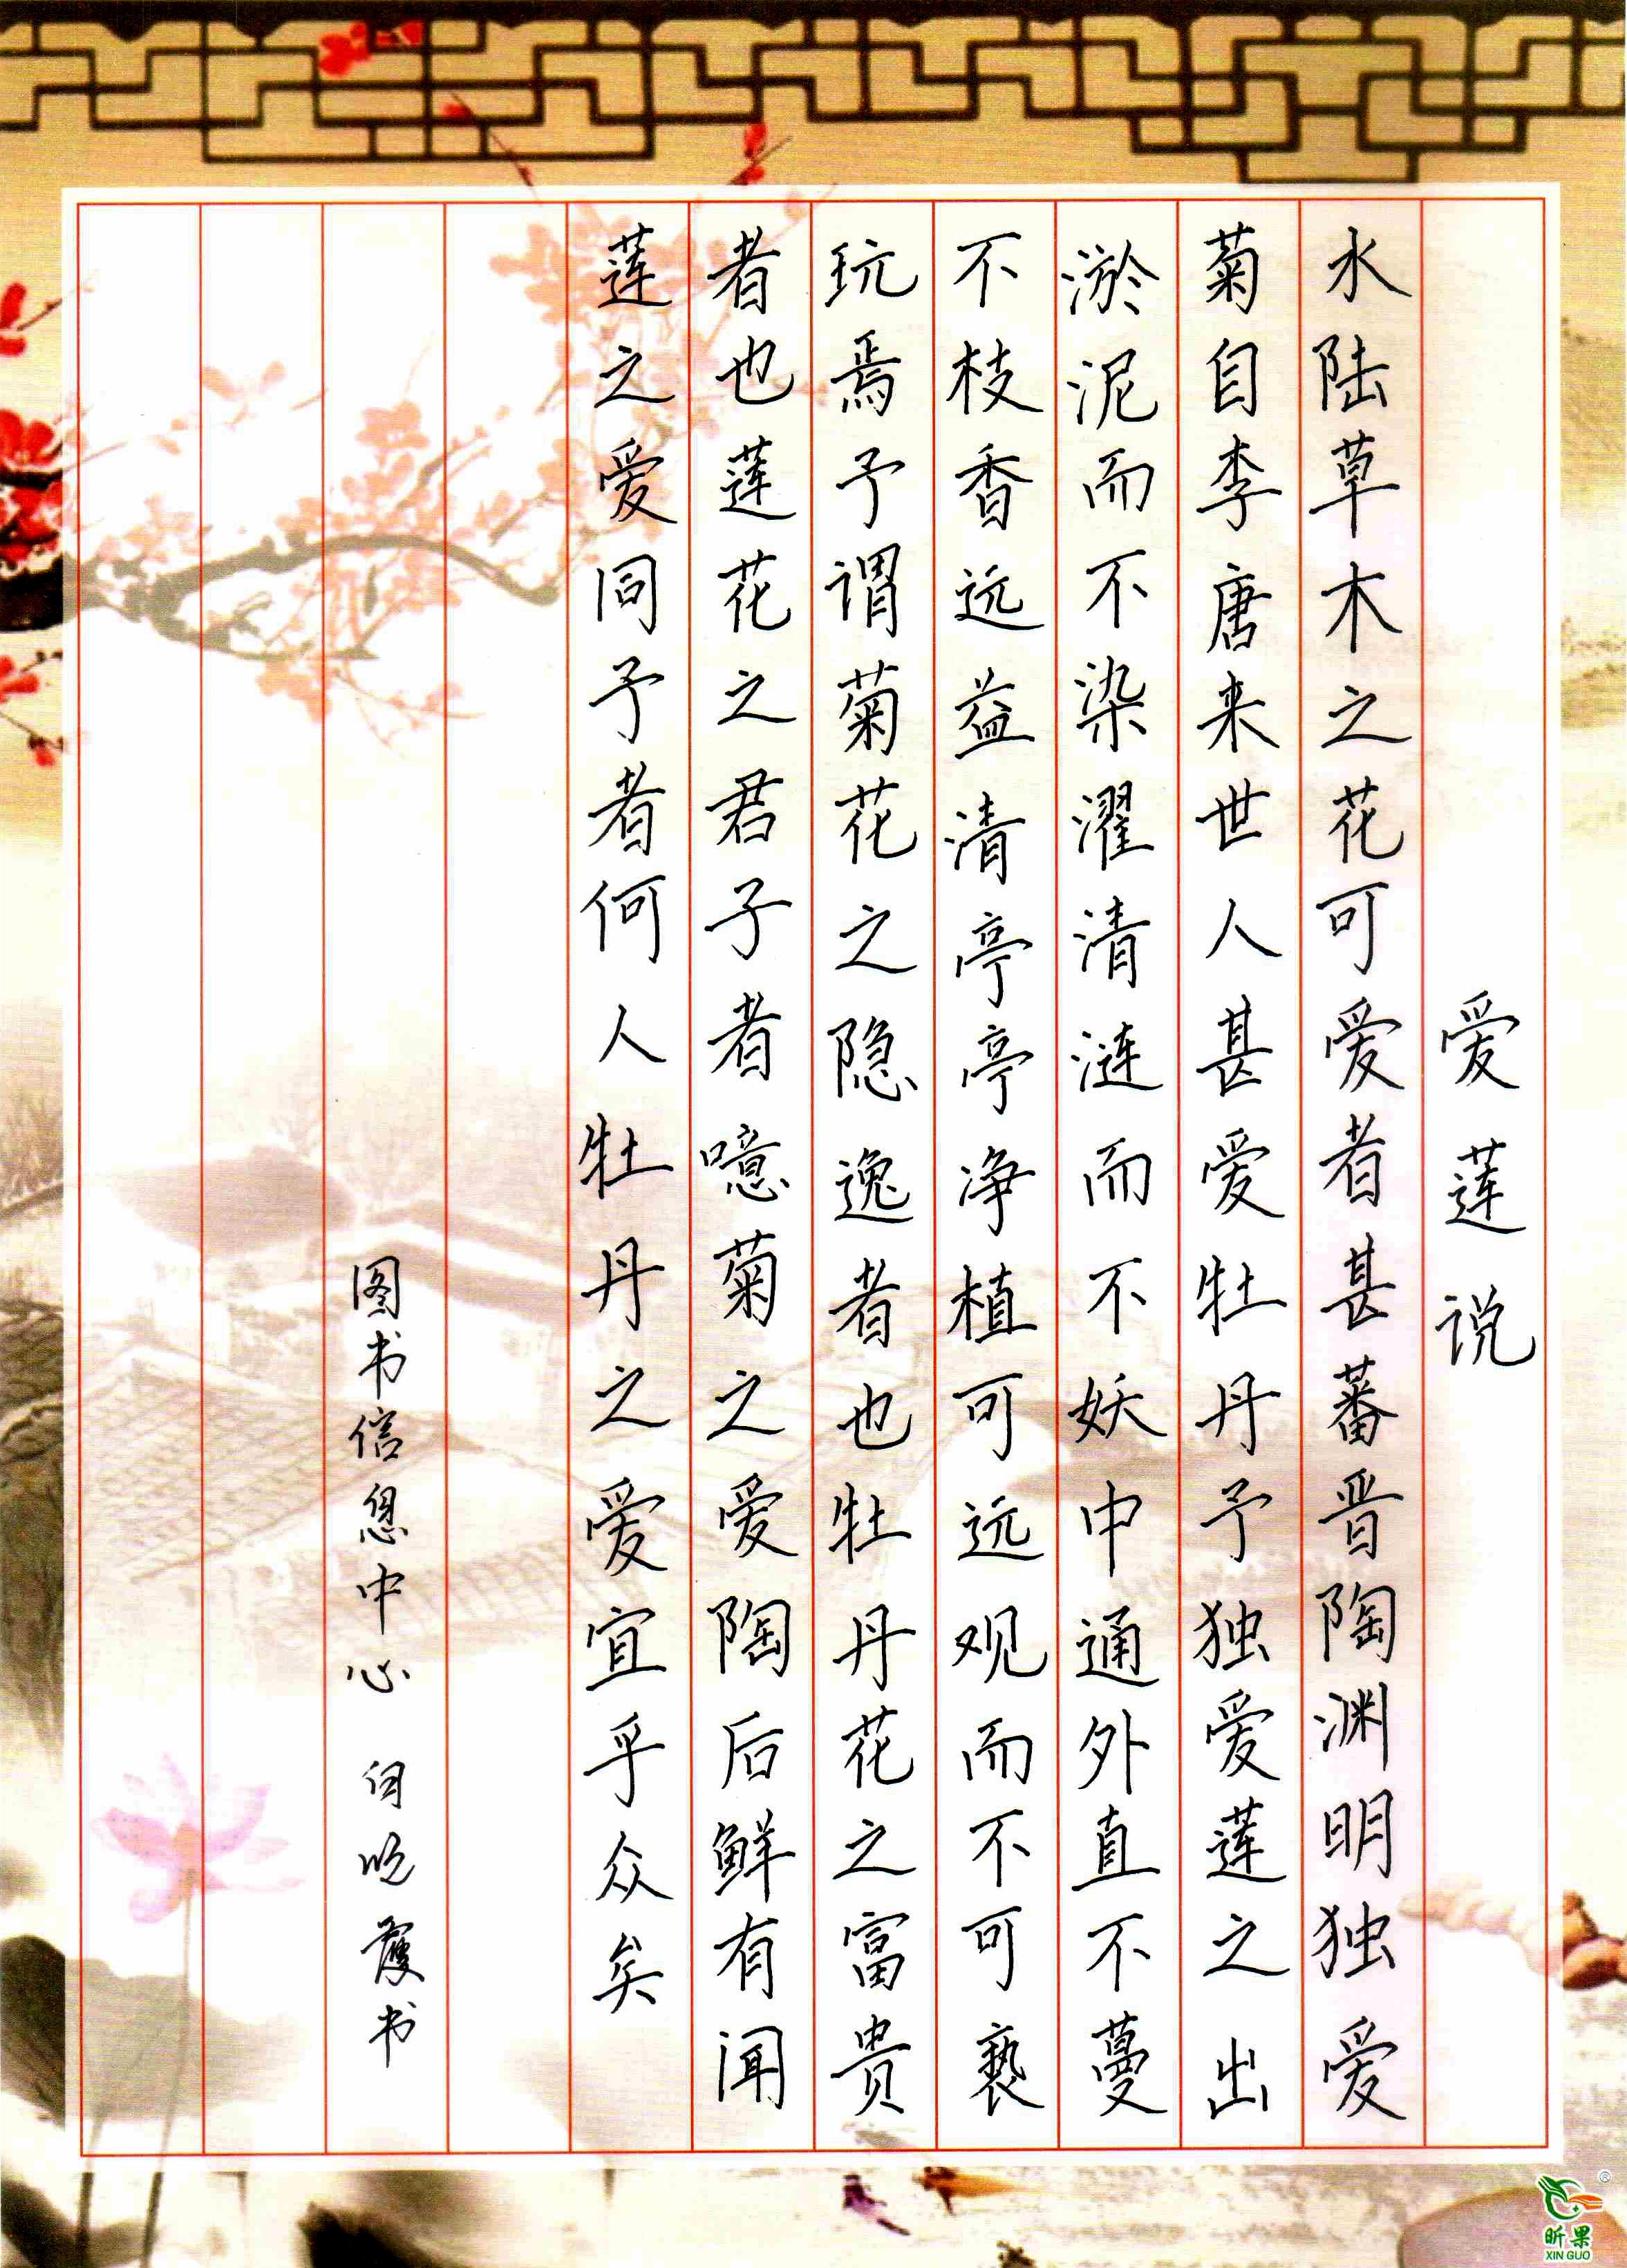 爱莲说
水陆草木之花可爱者甚蕃晋陶渊明独爱
菊自李唐来世人甚爱牡丹予独爱莲之出
淤泥而不染濯清涟而不妖中通外直不蔓
不枝香远益清亭亭净植可远观而不可亵
玩焉予谓菊花之隐逸者也牡丹花之富贵
者也莲花之君子者噫菊之爱陶后鲜有闻
莲之爱同予者何人牡丹之爱宜乎众矣
图书信息中心 书
昕果
XIN GUO